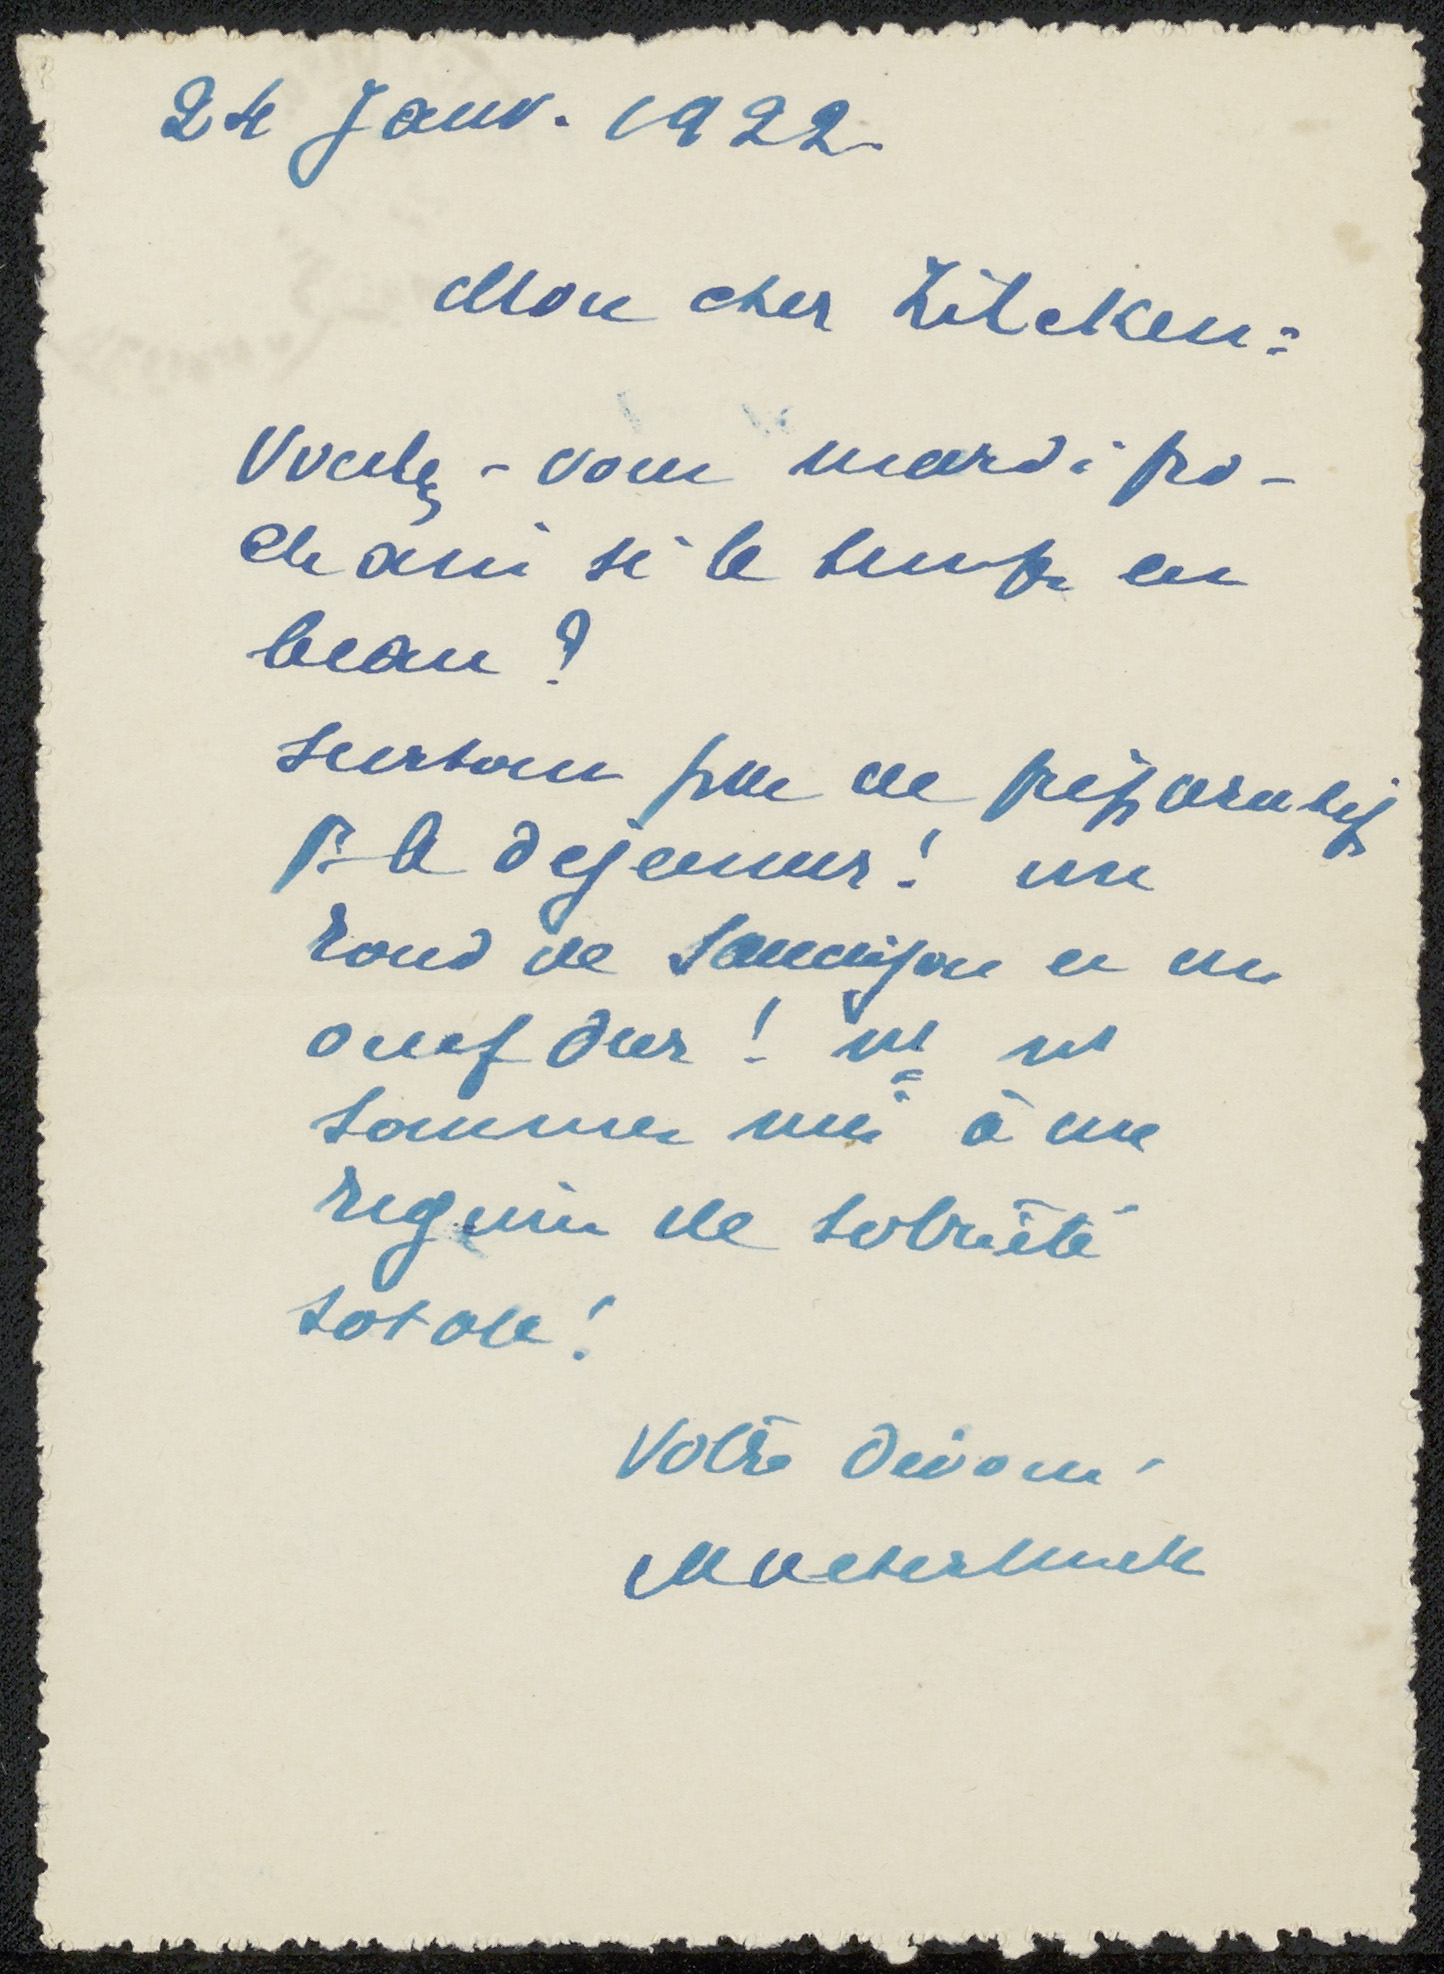 24 Janv. 1922.
Mon cher Zilcken:
Voulez-vous mardi pro-
chain si le temps est
beau?
Surtout pas de préparatifs
pr le dejeuner! un
rond de saucisson et un
oeuf dur! ns ns
sommes mis à un
regime de sobriété
totale!
Votre dévoué
Maeterlinck